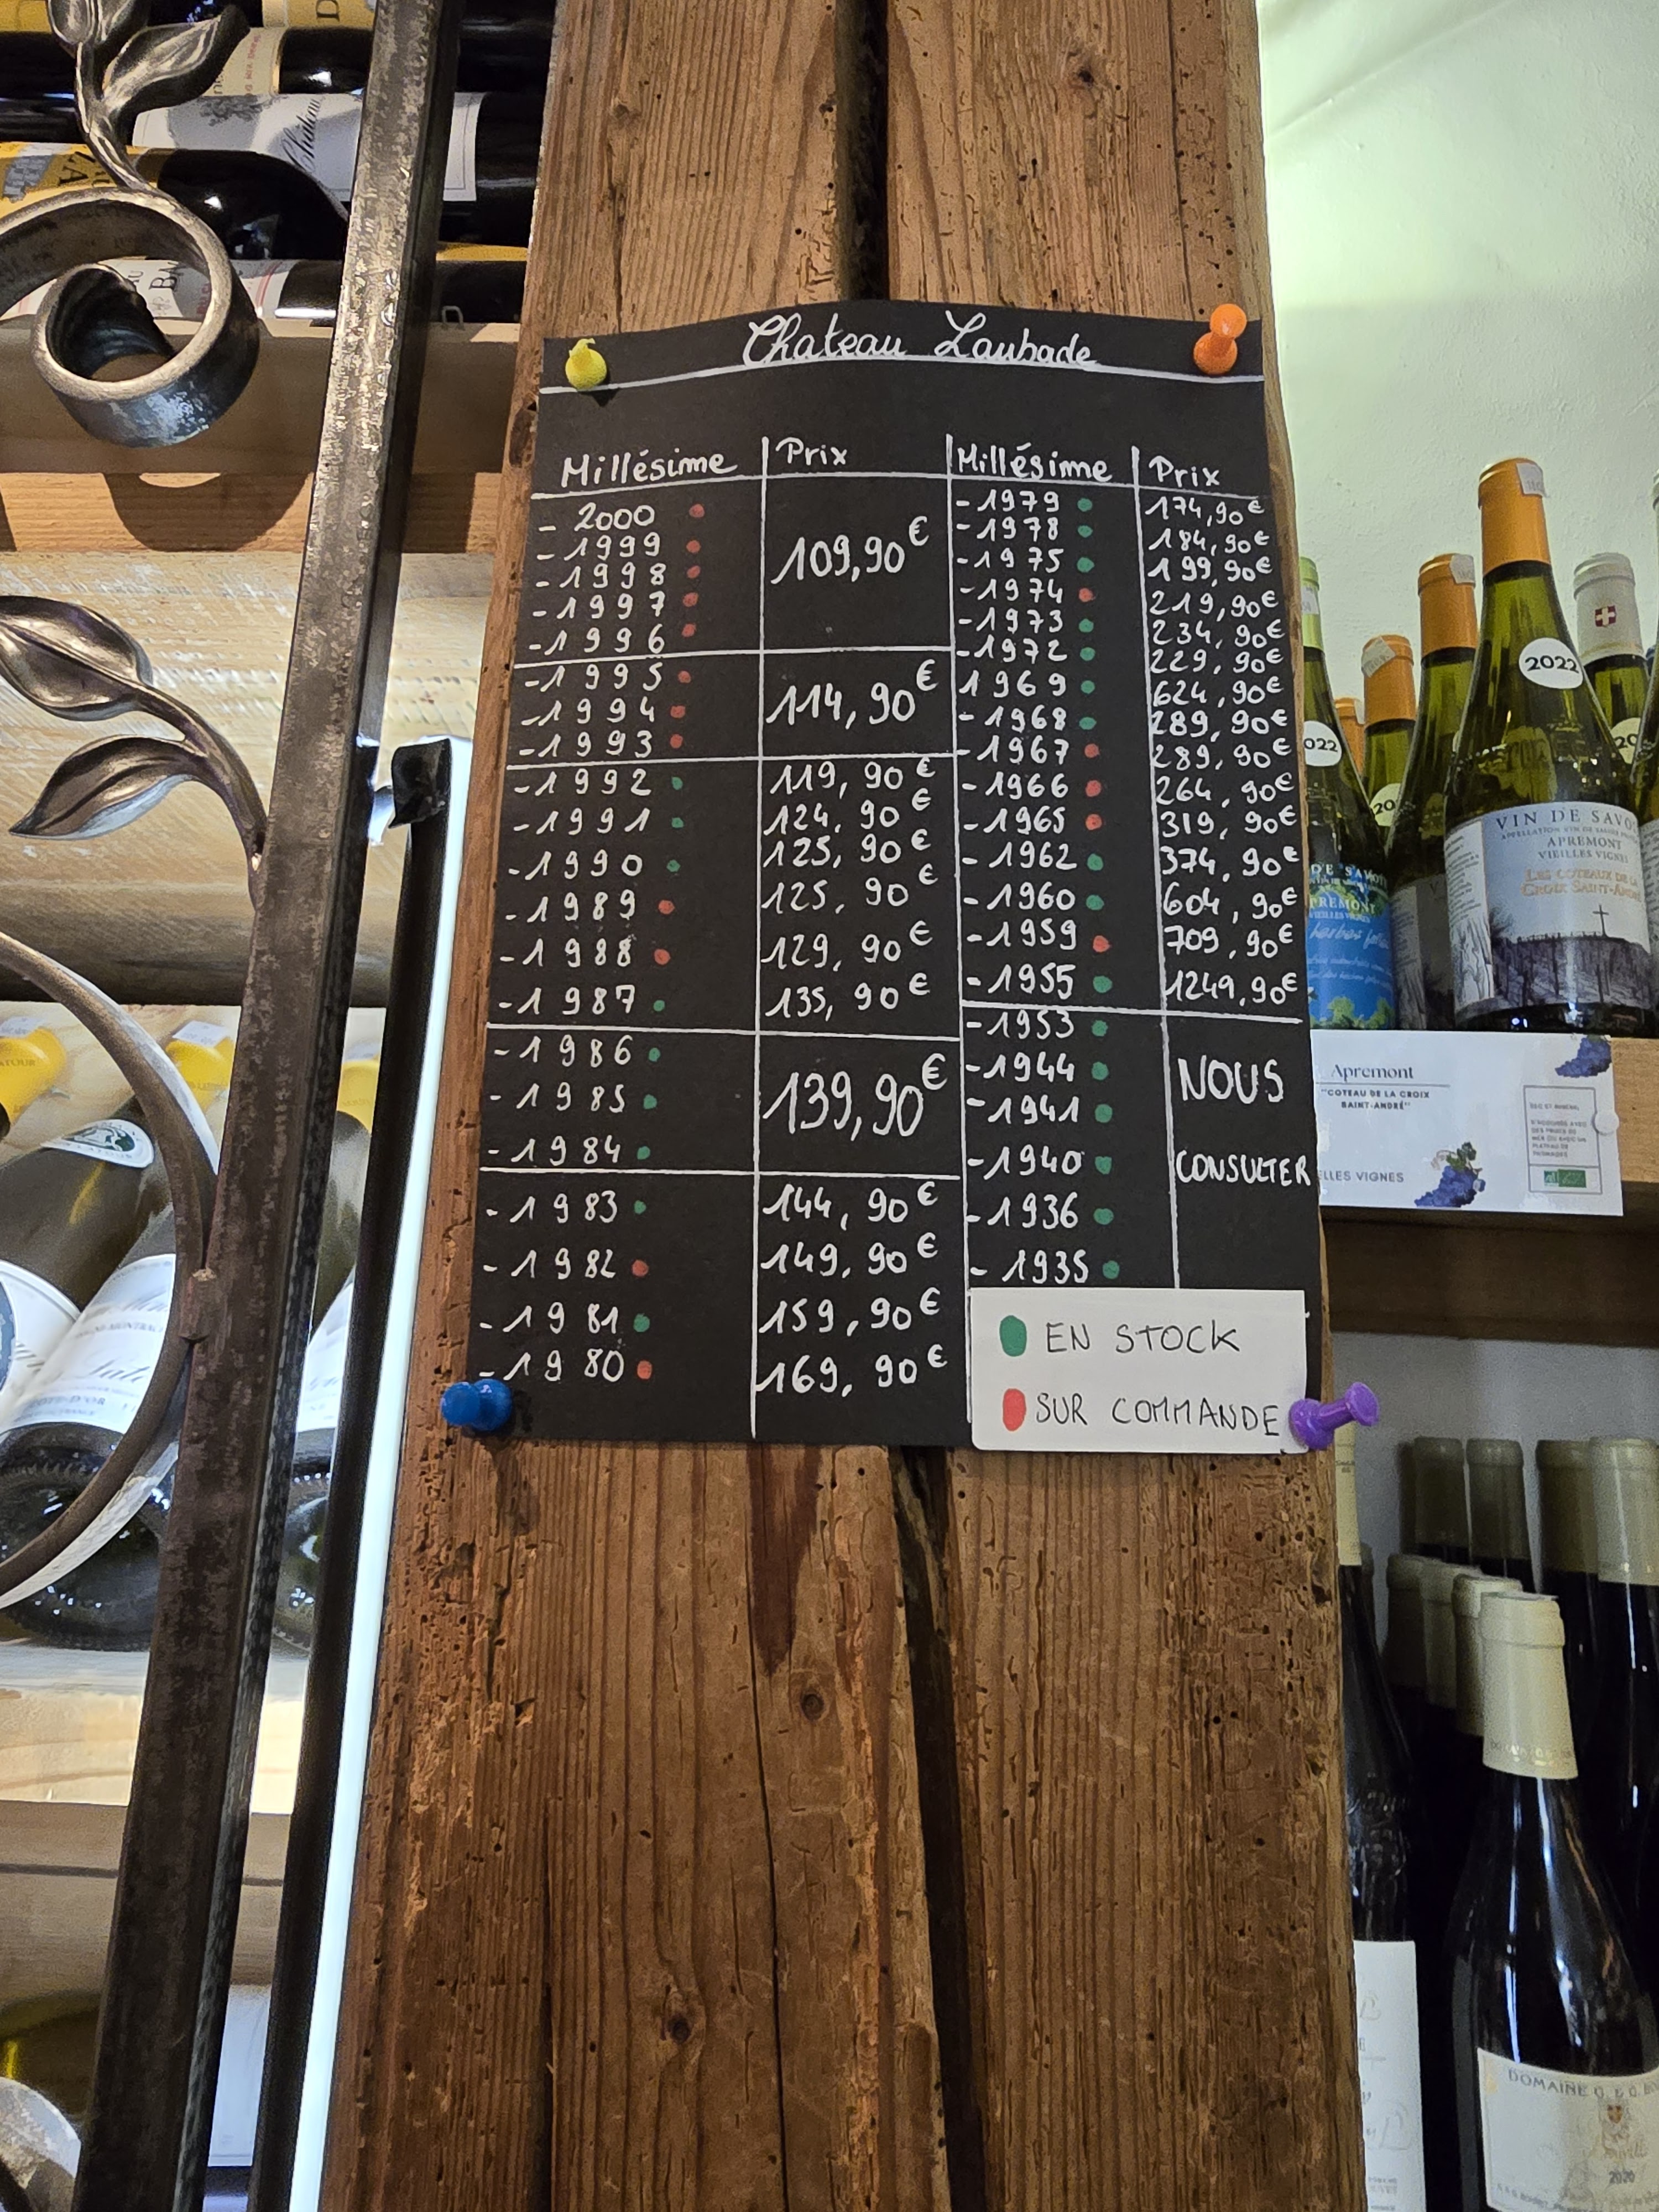 Chateau Laubade
Millésime Prix
- 2000
- 1999
- 1998
- 1997
- 1996
109,90€
- 1995
- 1994
- 1993
114,90€
- 1992 119,90€
- 1991 124,90€
- 1990 125,90€
- 1989 125,90€
- 1988 129,90€
- 1987 135,90€
- 1986
- 1985
- 1984
139,90€
- 1983 144,90€
- 1982 149,90€
- 1981 159,90€
- 1980 169,90€
Millésime Prix
- 1979 174,90€
- 1978 184,90€
- 1975 199,90€
- 1974 219,90€
- 1973 234,90€
- 1972 229,90€
1969 624,90€
- 1968 289,90€
- 1967 289,90€
- 1966 264,90€
- 1965 319,90€
- 1962 374,90€
- 1960 604,90€
- 1959 709,90€
- 1955 1249,90€
- 1953
- 1944
- 1941
- 1940
- 1936
- 1935
NOUS
CONSULTER
EN STOCK
SUR COMMANDE
2022
VIN DE SAVO
APPELLATION VIN DE SAVOIE
APREMONT
VIEILLES VIGNES
LES COTEAUX DE LA
CROIX SAINT-AND
022
DE SAVOIE
PREMONT
VIEILLES VIGNES
herbes
Apremont
"COTEAU DE LA CROIX
SAINT-ANDRÉ"
SEC ET MINÉRAL
ELLES VIGNES
AB
Château
DOMAINE G. & G. BO
2020